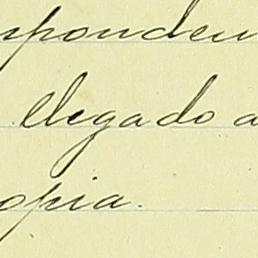 sponden
llegado a
opia.